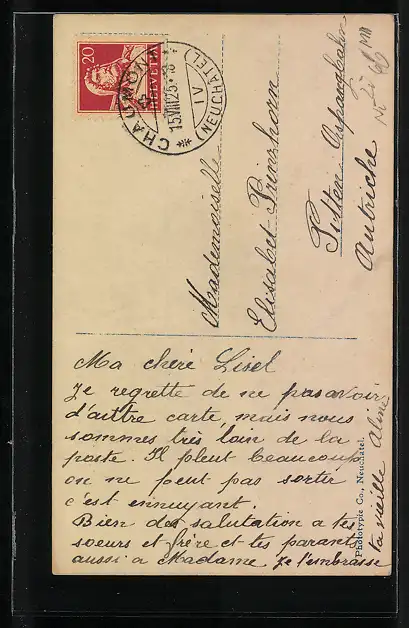 20
HELVETIA
CHAUMONT
15.VIII.25.-8
IV
(NEUCHATEL)
Mademoiselle
Elisabet Prinzhorn
Pitten Aspangbahn
Autriche
Ma chère Lisel
Je regrette de ne pas avoir
d'autre carte, mais nous
sommes très loin de la
poste. Il pleut beaucoup
on ne peut pas sortir
c'est ennuyant.
Bien des salutation a tes
soeurs et frère et tes parents
aussi a Madame. Je t'embrasse
ta vieille Aline
Phototypie Co., Neuchatel.